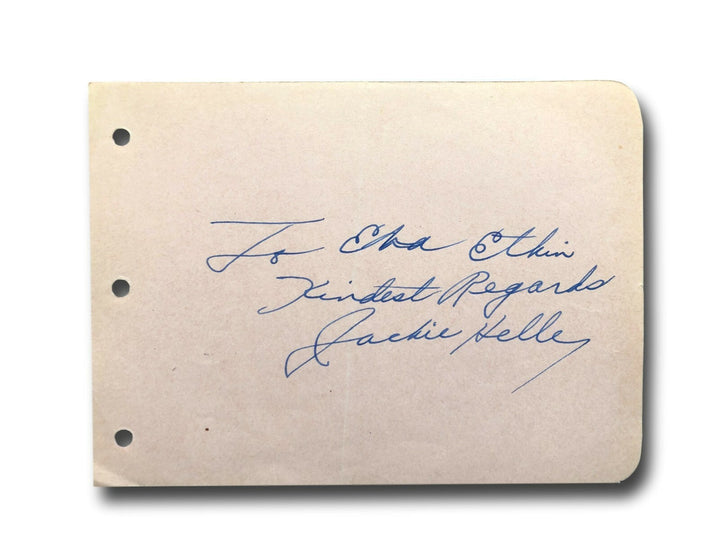 To Eba Etkin
Kindest Regards
Jackie Heller